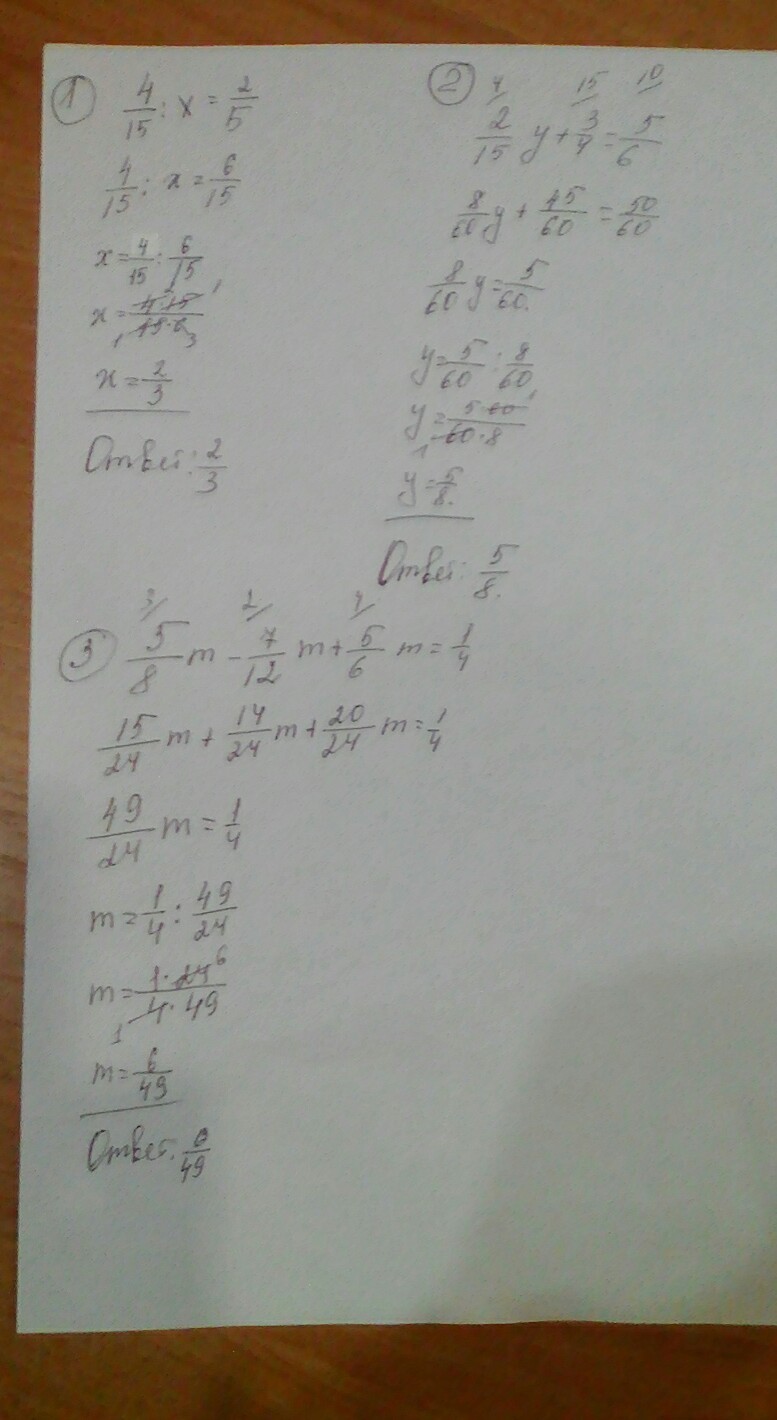 ① 4/15 : x = 2/5
4/15 : x = 6/15
x = 4/15 : 6/15
x = 4·15/15·6
x = 2/3
Ответ: 2/3
② 4/ 15/ 10/
2/15 y + 3/4 = 5/6
8/60 y + 45/60 = 50/60
8/60 y = 5/60.
y = 5/60 : 8/60
y = 5·60/60·8
y = 5/8.
Ответ: 5/8.
3/ 2/ 4/
③ 5/8 m - 7/12 m + 5/6 m = 1/4
15/24 m + 14/24 m + 20/24 m = 1/4
49/24 m = 1/4
m = 1/4 : 49/24
m = 1·24/4·49
m = 6/49
Ответ: 6/49